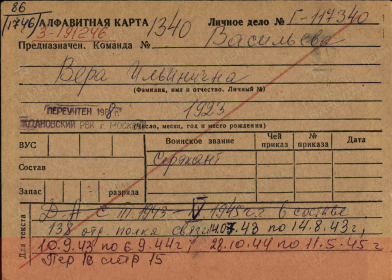 86
1746
АЛФАВИТНАЯ КАРТА
Личное дело № Г-117340
3-191246
1340
Предназначен. Команда №
Васильева
Вера Ильинична
(Фамилия, имя и отчество. Личный №)
ПЕРЕУЧТЕН 198
ЖДАНОВСКИЙ РВК г. МОСКВЫ
1923
(Число, месяц, год и место рождения)
ВУС
Воинское звание
Чей приказ
№ приказа
Дата
Состав
Сержант
Запас
разряда
Для текста
Д-А с III 1943 - V 1945 г.г в составе
138 отр. полка связи 07.43 по 14.8.43 г,
10.9.43 по 6.9.44 г 28.10.44 по 11.5.45 г.
Пер 16 стр 15